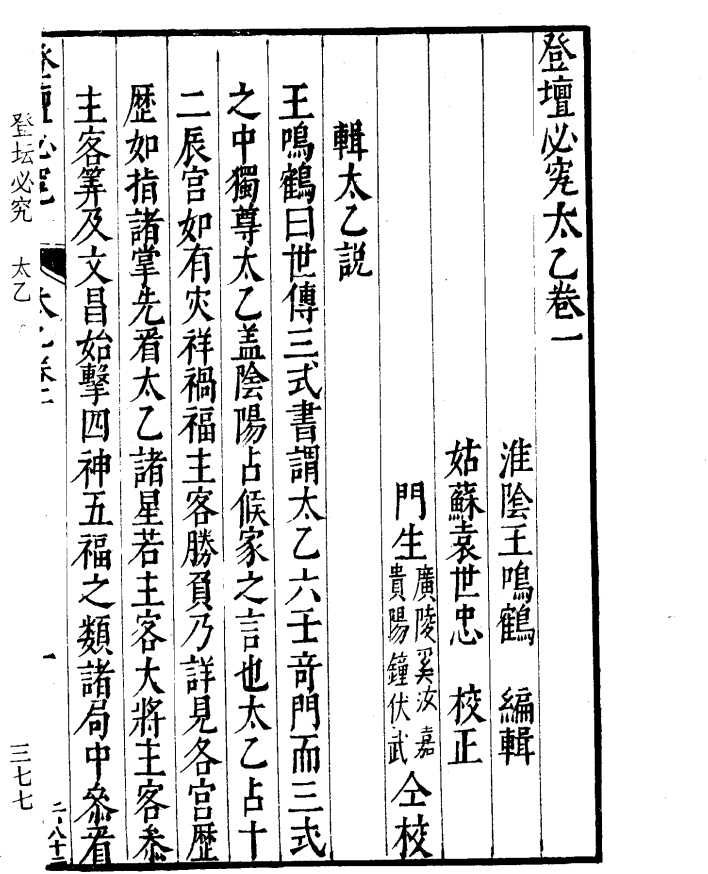 登壇必究太乙卷一
淮陰王鳴鶴 編輯
姑蘇袁世忠 校正
門生 廣陵奚汝嘉 貴陽鐘伏武 仝校
輯太乙説
王鳴鶴曰世傳三式書謂太乙六壬竒門而三式
之中獨尊太乙盖陰陽占候家之言也太乙占十
二辰宫如有灾祥禍福主客勝負乃詳見各宫歴
歴如指諸掌先看太乙諸星若主客大將主客叅
主客筭及文昌始擊四神五福之類諸局中叅看
登壇必究 太乙卷一
一
二·八十二
登坛必究 太乙
三七七